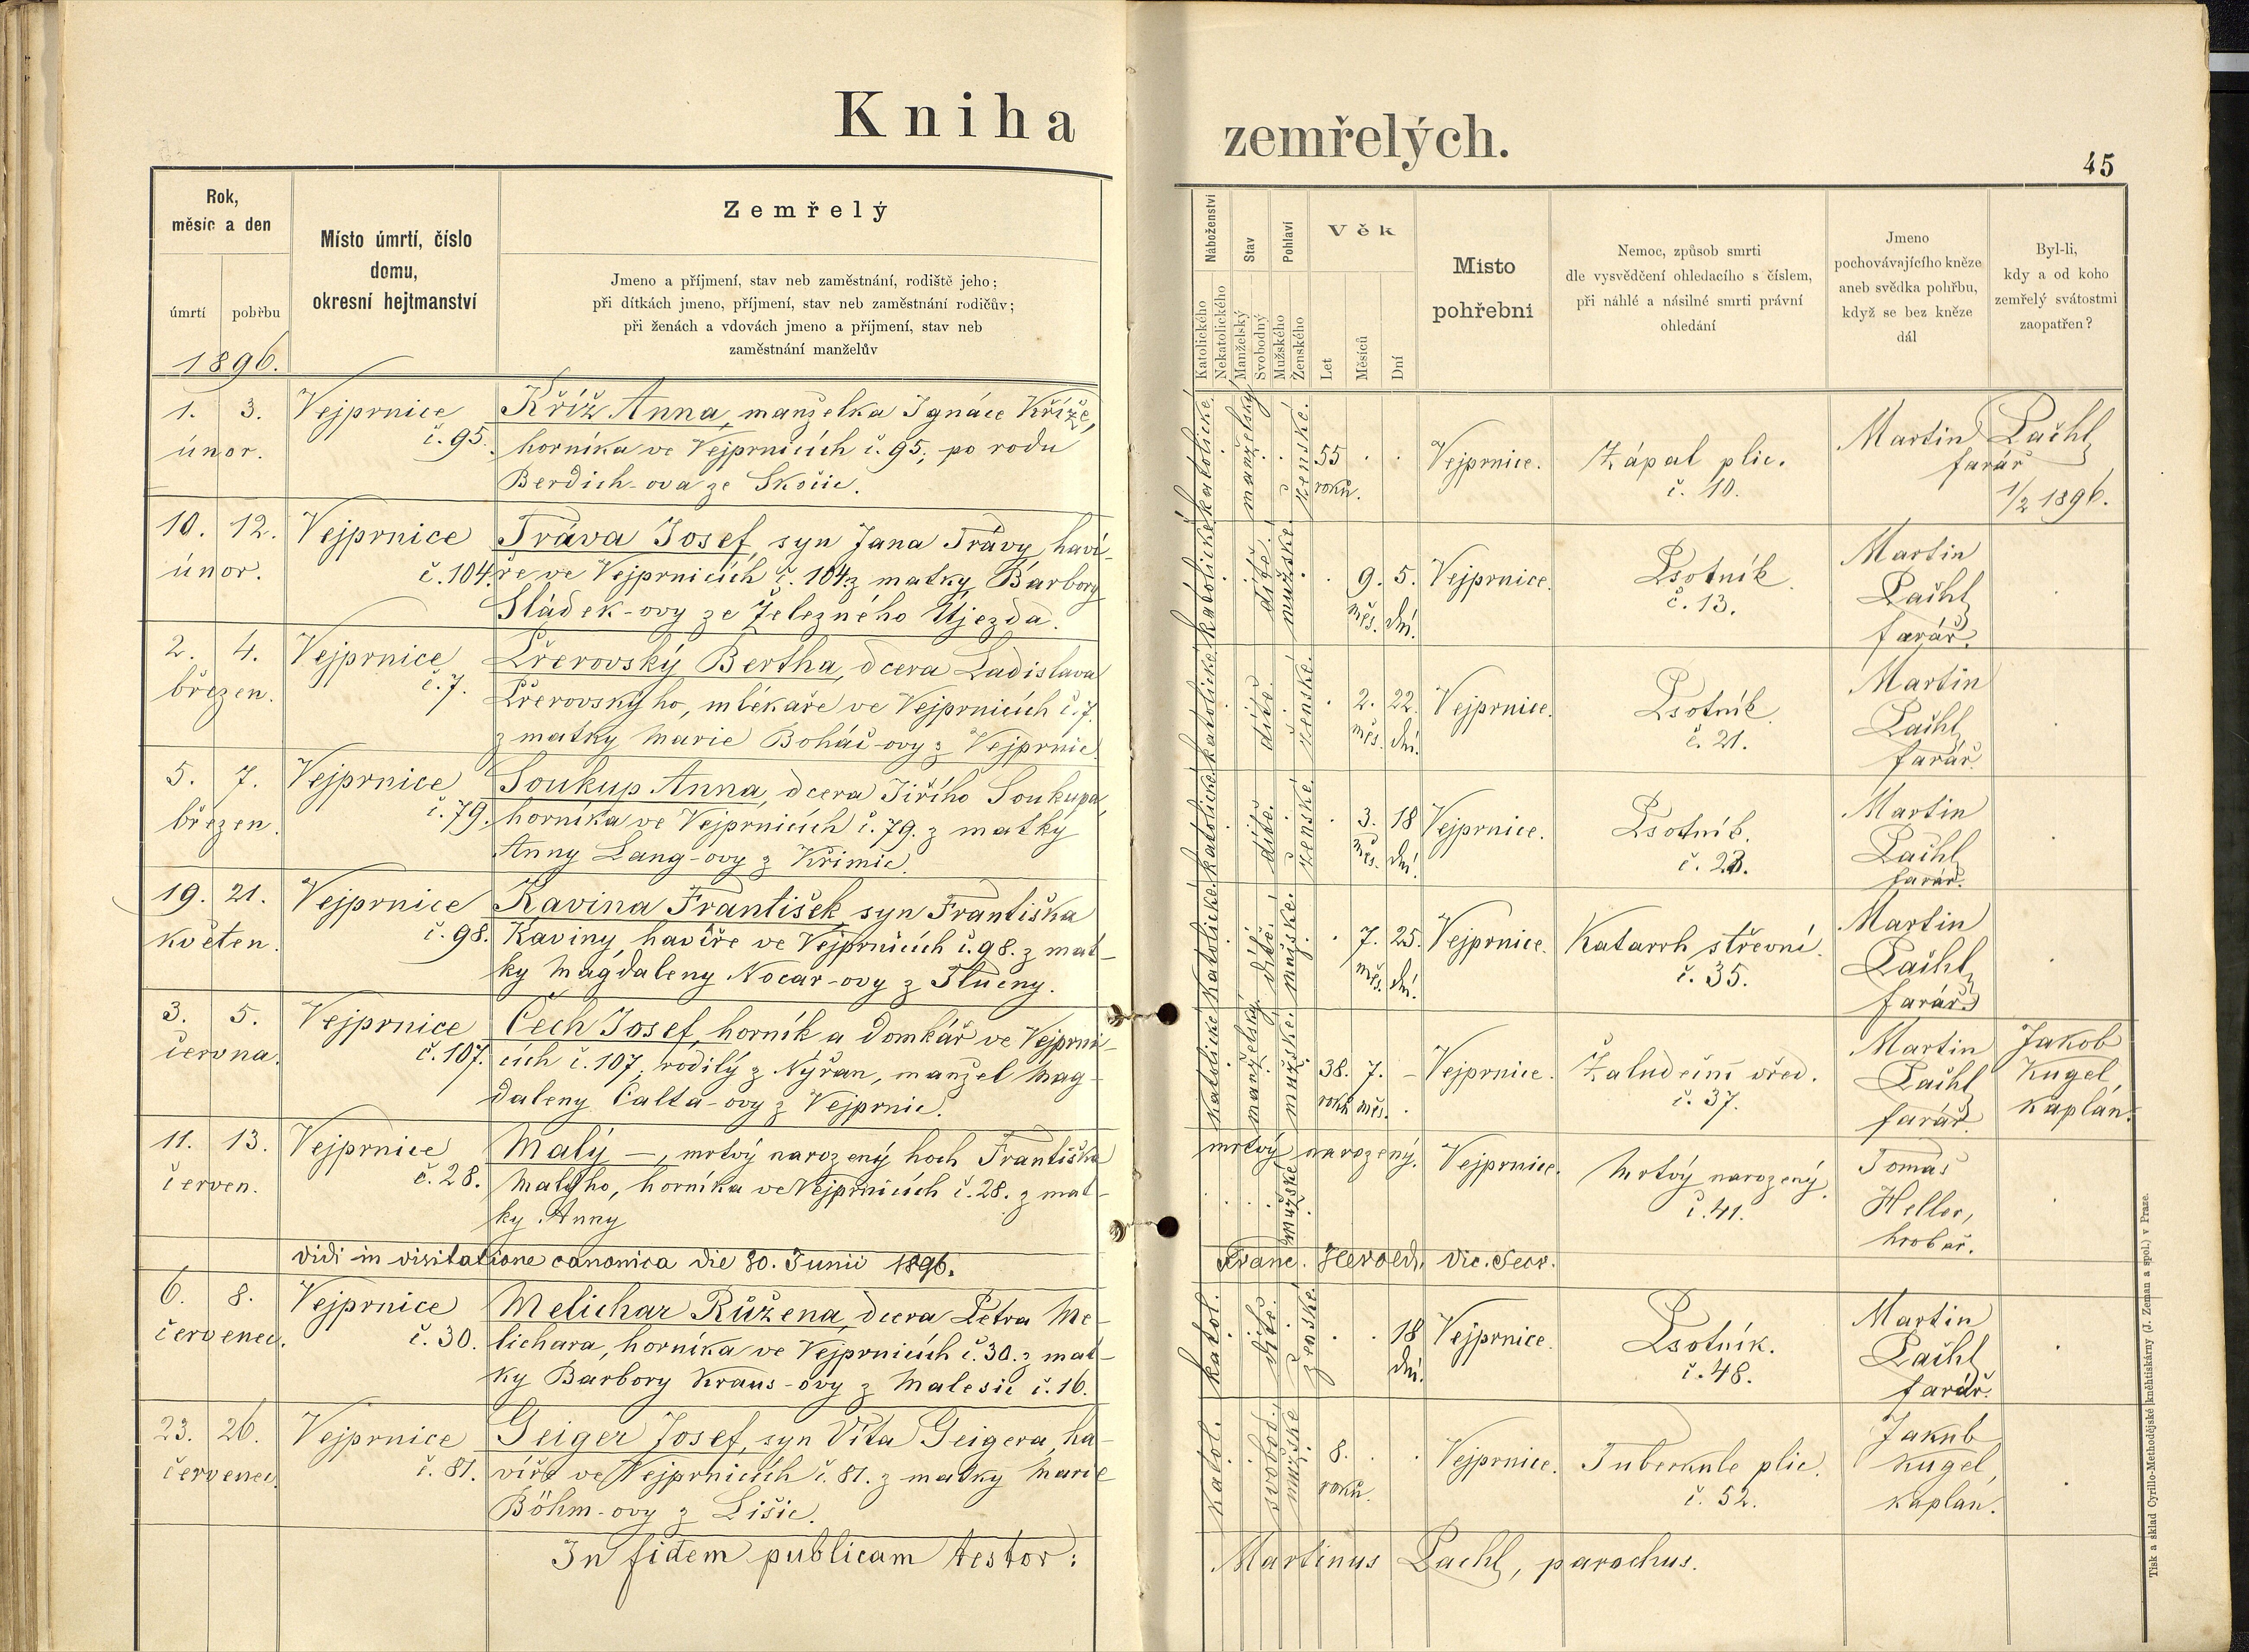 Kniha zemřelých.
45
Rok,
měsíc a den
úmrtí
pohřbu
1896.
Místo úmrtí, číslo
domu,
okresní hejtmanství
Zemřelý
Jmeno a příjmení, stav neb zaměstnání, rodiště jeho;
při dítkách jmeno, příjmení, stav neb zaměstnání rodičův;
při ženách a vdovách jmeno a příjmení, stav neb
zaměstnání manželův
Náboženství
Katolického
Nekatolického
Stav
Manželský
Svobodný
Pohlaví
Mužského
Ženského
Věk
Let
Měsíců
Dní
Místo
pohřební
Nemoc, způsob smrti
dle vysvědčení ohledacího s číslem,
při náhlé a násilné smrti právní
ohledání
Jmeno
pochovávajícího kněze
aneb svědka pohřbu,
když se bez kněze
dál
Byl-li,
kdy a od koho
zemřelý svátostmi
zaopatřen?
1. 3.
únor.
Vejprnice
č. 95.
Kříž Anna, manželka Ignáce Kříže,
horníka ve Vejprnicích č. 95, po rodu
Berdich-ova ze Skočic.
katolické
manželský
ženské.
55
roků.
Vejprnice.
Zápal plic.
č. 10.
Martin Pačhl
farář
1/2 1896.
10. 12.
únor.
Vejprnice
č. 104.
Tráva Josef, syn Jana Trávy, haví-
ře ve Vejprnicích č. 104. z matky Barbory
Sládek-ovy ze Železného Újezda.
katolické
dítě.
mužské.
9. 5.
měs. dní.
Vejprnice.
Psotník.
č. 13.
Martin
Pačhl
farář.
2. 4.
březen.
Vejprnice
č. 7.
Přerovský Bertha, dcera Ladislava
Přerovskýho, mlékaře ve Vejprnicích č. 7.
z matky Marie Boháč-ovy z Vejprnic.
katolické
dítě.
ženské.
2. 22.
měs. dní.
Vejprnice.
Psotník.
č. 21.
Martin
Pačhl
farář.
5. 7.
březen.
Vejprnice
č. 79.
Soukup Anna, dcera Jiřího Soukupa,
horníka ve Vejprnicích č. 79. z matky
Anny Lang-ovy z Křimic.
katolické
dítě.
ženské.
3. 18
měs. dní.
Vejprnice.
Psotník.
Martin
Pačhl
farář.
19. 21.
květen.
Vejprnice
č. 98.
Kavina František, syn Františka
Kaviny, havíře ve Vejprnicích č. 98. z mat-
ky Magdaleny Nocar-ovy z Tlučny.
katolické
dítě.
mužské.
7. 25.
měs. dní.
Vejprnice.
Katarrh střevní.
č. 35.
Martin
Pačhl
farář
3. 5.
června.
Vejprnice
č. 107.
Čech Josef, horník a domkář ve Vejprni-
cích č. 107, rodilý z Nýřan, manžel Mag-
daleny Calta-ovy z Vejprnic.
katolické
manželský.
mužské.
38. 7. -
roků měs.
Vejprnice.
Žaludeční vřed.
č. 37.
Martin
Pačhl
farář.
Jakob
Kugel,
kaplan.
11. 13.
červen.
Vejprnice
č. 28.
Malý —, mrtvý narozený hoch Františka
Malýho, horníka ve Vejprnicích č. 28. z mat-
ky Anny
mrtvý narozený.
mužské
Vejprnice.
Mrtvý narozený.
č. 41.
Tomáš
Heller,
hrobař.
Vidi in visitatione canonica die 30. Junii 1896. Franc. Herold, vic. Secr.
6. 8.
červenec.
Vejprnice
č. 30.
Melichar Růžena, dcera Petra Me-
lichara, horníka ve Vejprnicích č. 30. z mat-
ky Barbory Kraus-ovy z Malesic č. 16.
katol.
dítě.
ženské
18
dní.
Vejprnice.
Psotník.
č. 48.
Martin
Pačhl
farář.
23. 26.
červenec.
Vejprnice
č. 81.
Geiger Josef, syn Víta Geigera, ha-
víře ve Vejprnicích č. 81. z matky Marie
Böhm-ovy z Lišic.
katol.
svobod.
mužské
8.
roků.
Vejprnice.
Tuberkule plic.
č. 52.
Jakub
Kugel,
kaplan.
In fidem publicam testor: Martinus Pachl, parochus.
Tisk a sklad Cyrillo-Methodějské kněhtiskárny (J. Zeman a spol.) v Praze.